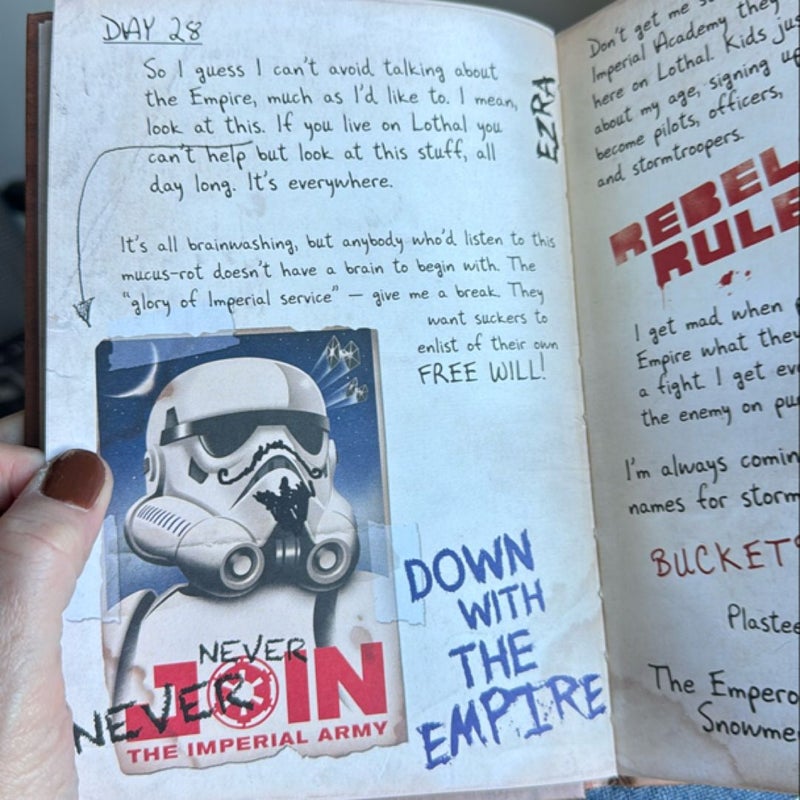 DAY 28
So I guess I can't avoid talking about
the Empire, much as I'd like to. I mean,
look at this. If you live on Lothal you
can't help but look at this stuff, all
day long. It's everywhere.
EZRA
It's all brainwashing, but anybody who'd listen to this
mucus-rot doesn't have a brain to begin with. The
"glory of Imperial service" — give me a break. They
want suckers to
enlist of their own
FREE WILL!
NEVER
NEVER
JOIN
THE IMPERIAL ARMY
DOWN
WITH
THE
EMPIRE
Don't get me
Imperial Academy they
here on Lothal. Kids
about my age, signing
become pilots, officers,
and stormtroopers.
REBEL
RULE
I get mad when
Empire what they
a fight. I get
the enemy on
I'm always
names for
BUCKET
The